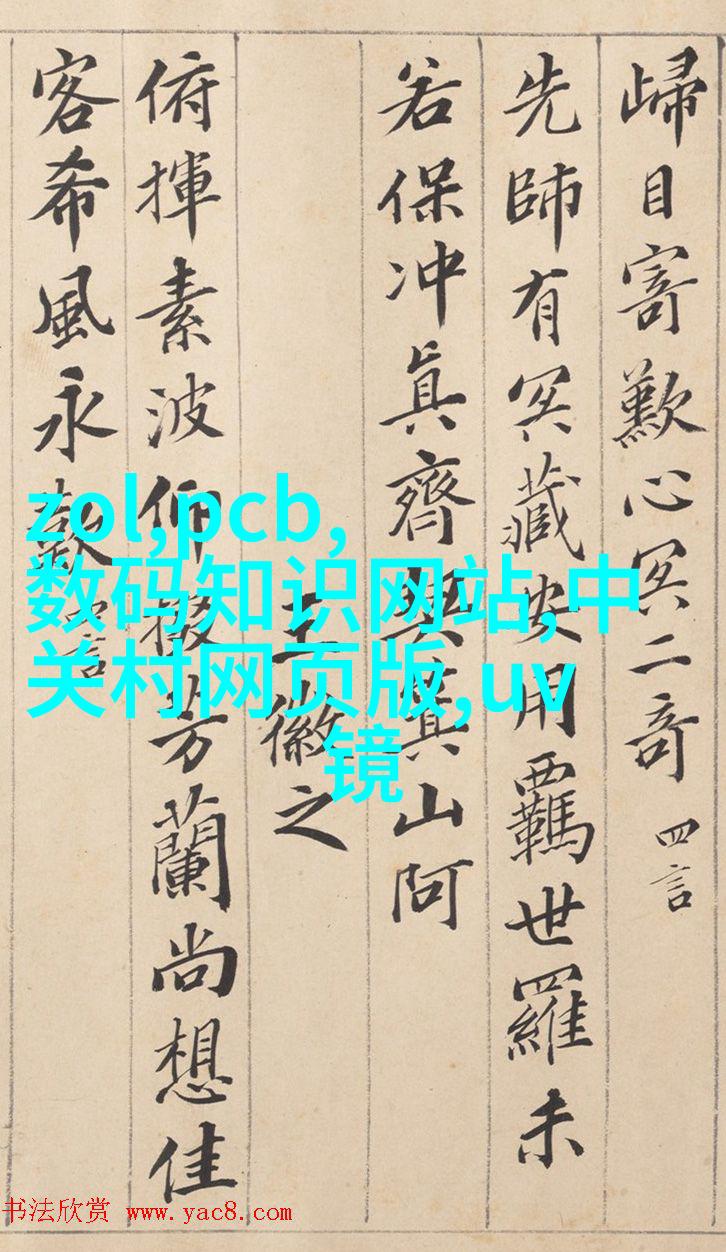 歸目寄歎心冥二奇 四言
先師有冥藏安用羈世羅未
若保冲眞齊契箕山阿
王徽之
俯揮素波仰掇芳蘭尚想佳
客希風永歎 言
zol,pcb,
数码知识网站,中
关村网页版,uv
镜
书法欣赏 www.yac8.com